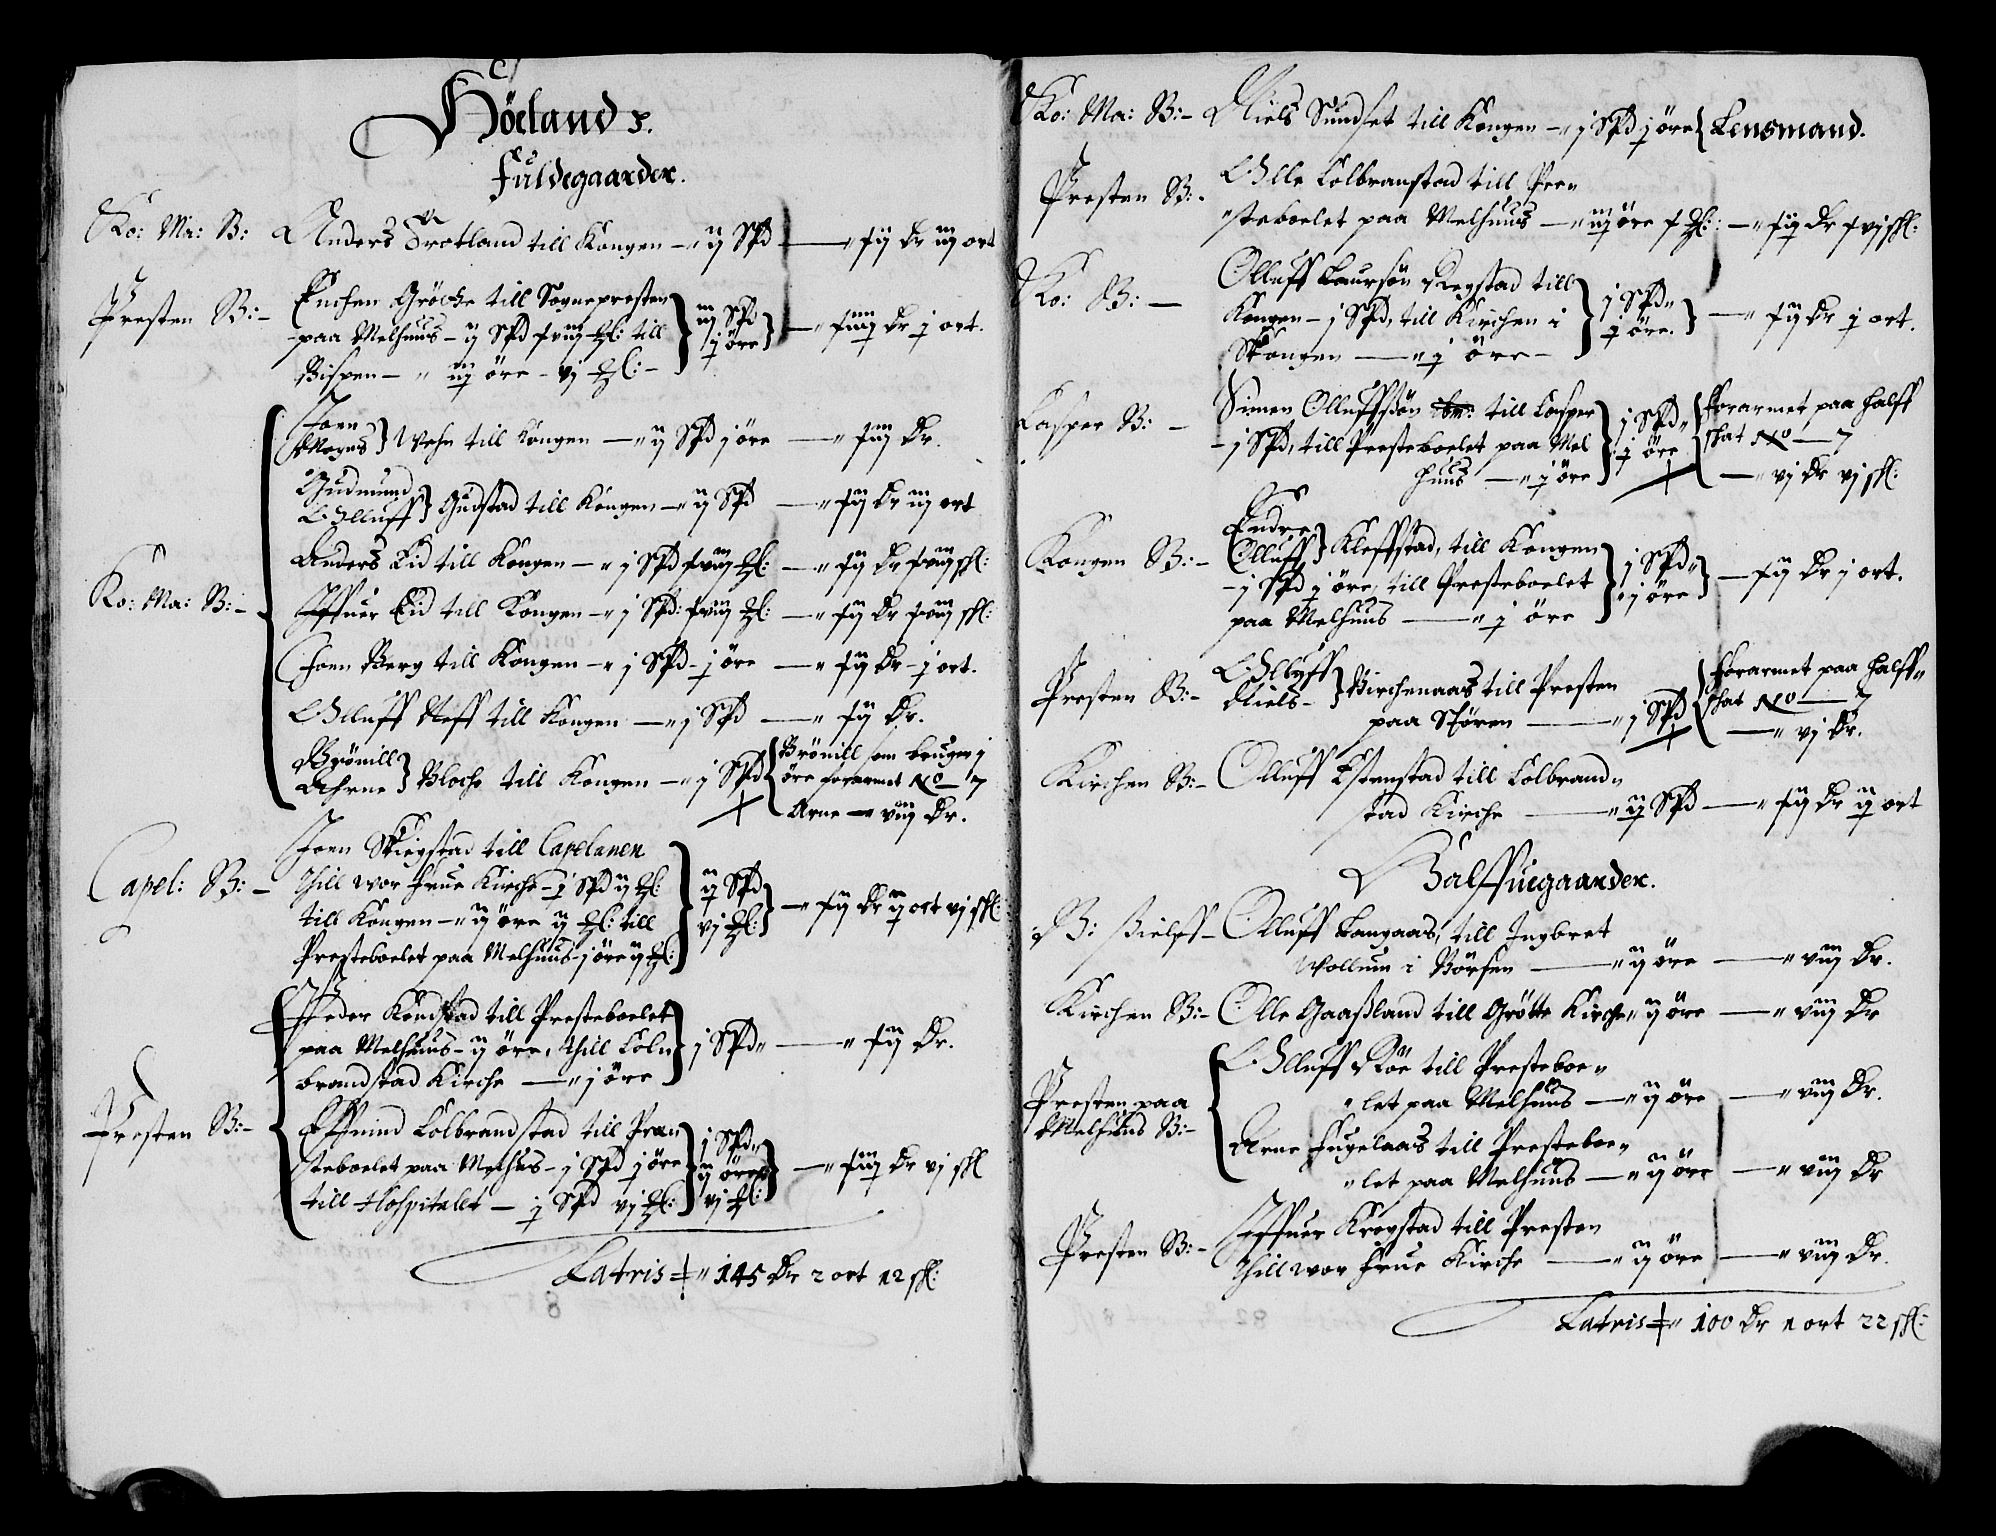 Höeland s.
Fuldegaarder.
Ko: Ma: B: Anders Frotland till Kongen – ij Spd — xij Dr iij ort
Presten B:– Enchen Gröche till Sognepresten
paa Melhuus – ij Spd xviij Ml: till
Bispen – iij öre – vj Ml: – iij Spd j öre — xiiij Dr j ort.
Ko: Ma: B:–
Joen
Mogns Wehn till Kongen – ij Spd j öre — xiij Dr.
Gudmund
Olluff Gudstad till Kongen – ij Spd — xij Dr iij ort
Anders Eid till Kongen – j Spd xviij Ml: — xij Dr xviij skl:
Iffuer Eid till Kongen – j Spd: xviij Ml: — xij Dr xviij skl:
Joen Berg till Kongen – j Spd – j öre — xij Dr – j ort.
Olluff Neff till Kongen – j Spd — xij Dr.
Brönill
Ahrne Bloche till Kongen – j Spd
Brönill som bruger j
öre forarmet No – 7
Arne – viij Dr.
Capel: B:– Joen Skiegstad till Capelanen
thill wor frue Kirche – j Spd ij Ml:
till Kongen – ij öre ij Ml: till
Presteboelet paa Melhuus – j öre ij Ml: ij Spd vj Ml: — xij Dr ij ort vj skl:
Presten B:–
Peder Kondstad till Presteboelet
paa Melhuus – ij öre, thill Coln
brandstad Kirche — j öre j Spd — xij Dr.
Effuind Colbrandstad till Pren
steboelet paa Melhus – j Spd j öre
till Hospitalet – j Spd vj Ml: vj Ml: — xiij Dr vj skl
Latris 145 Dr 2 ort 12 skl:
Ko: Ma: B:– Niels Sundset till Kongen – j Spd j öre Lensmand.
Presten B:– Olle Colbranstad till Pre
steboelet paa Melhuus — iij öre x Ml: — xij Dr xvj skl:
Ko: B: — Olluff Laursön Regstad till
Kongen – j Spd, till Kirchen i
Skougen — j öre – j Spd j öre. — xij Dr j ort.
Casper B: – Simen Olluffsön ibm: till Casper
– j Spd, till Presteboelet paa Mel
huus — j öre j Spd j öre
forarmet paa halff
skat No — 7
— vj Dr vj skl:
Kongen B:– Endre
Olluff Kleffstad, till Kongen
– j Spd j öre, till Presteboelet
paa Melhuus — j öre j Spd j öre — xij Dr j ort.
Presten B:– Olluff
Niels – Birchenaas till Presten
paa Stören — j Spd
forarmet paa halff
skat No — 7
— vj Dr.
Kirchen B:– Olluff Estenstad till Colbrand
stad Kirche — ij Spd — xij Dr ij ort
Halffuegaarder.
B: Sielff – Olluff Langaas, till Ingbret
Wollum i Börsen — ij öre — viij Dr.
Kirchen B:– Olle Gaaßland till Grötte Kirche ij öre — viij Dr
Presten paa
Melhuus B:–
Olluff Röe till Presteboe
let paa Melhuus — ij öre — viij Dr.
Arne Fugelaas till Presteboe
let paa Melhuus — ij öre — viij Dr
Presten B:– Iffuer Krogstad till Presten
thill wor frue Kirche — ij öre — viij Dr.
Latris 100 Dr 1 ort 22 skl: